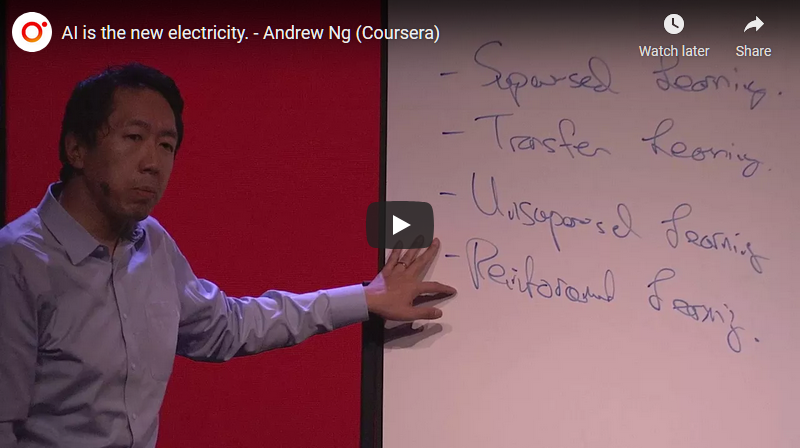 AI is the new electricity. - Andrew Ng (Coursera)
Watch later
Share
- Supervised Learning.
- Transfer Learning.
- Unsupervised Learning
- Reinforcement Learning.